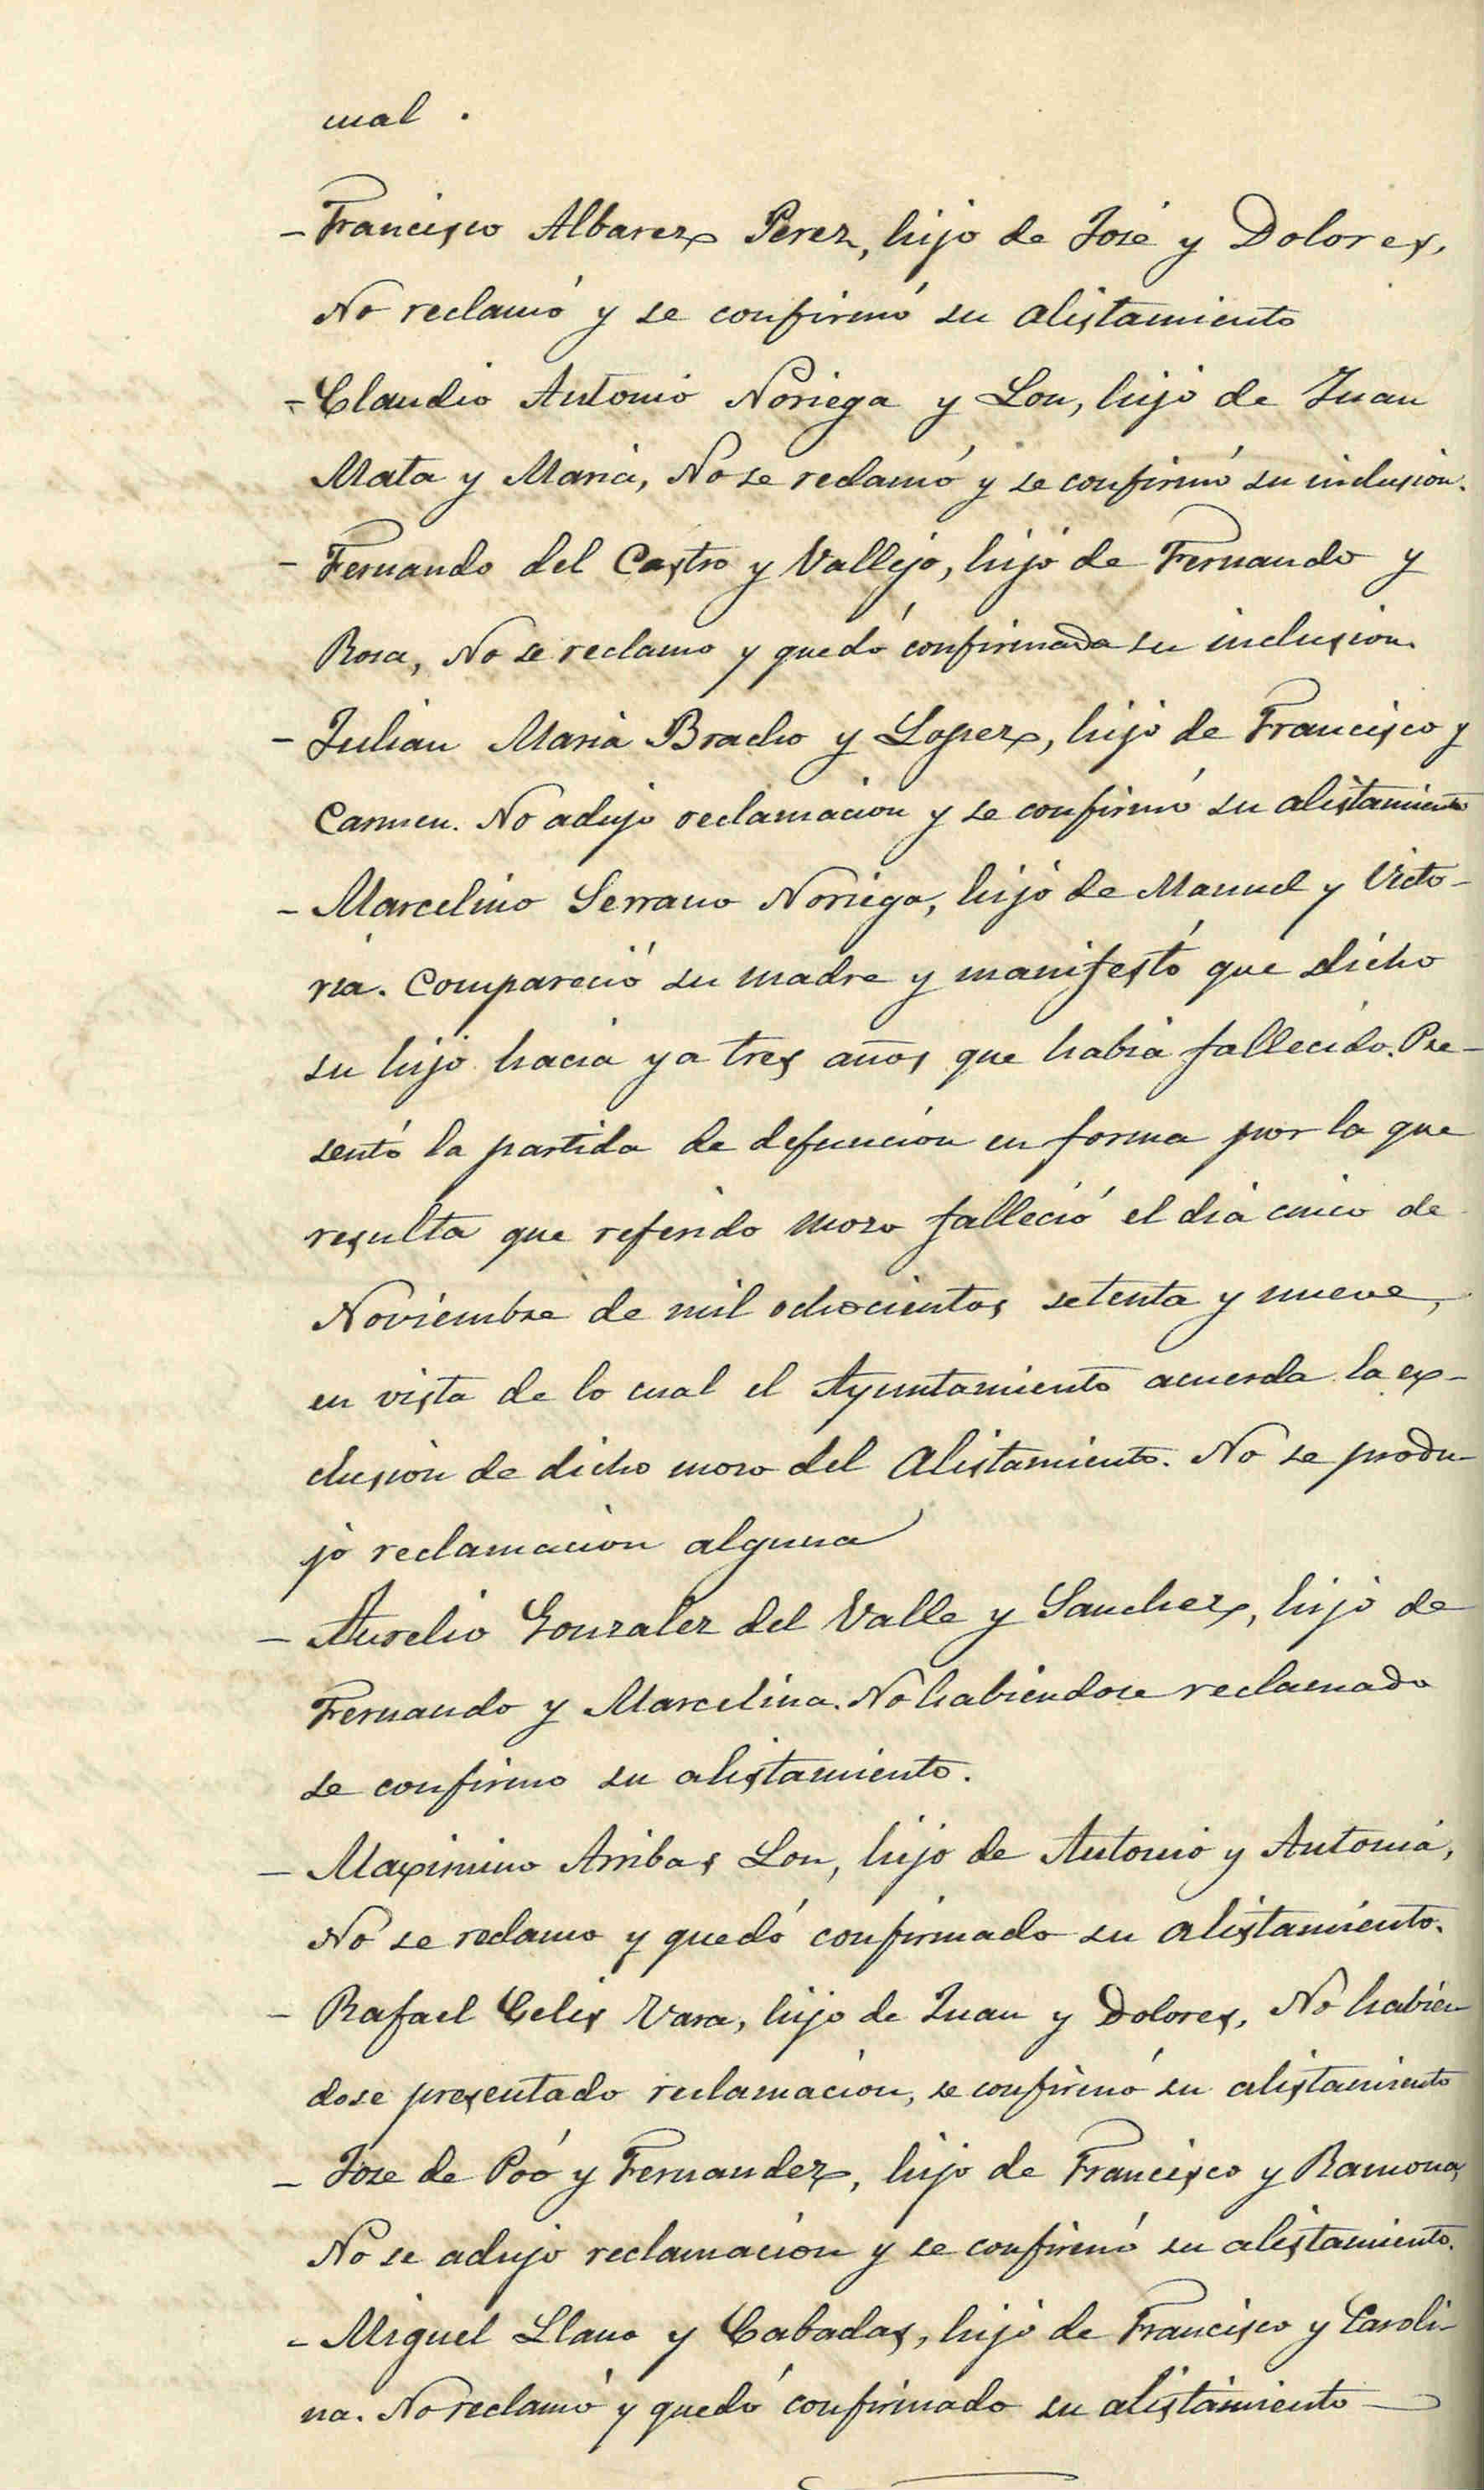 cual.
- Francisco Albarez Perez, hijo de José y Dolores,
No reclamó y se confirmó su alistamiento
- Claudio Antonio Noriega y Lon, hijo de Juan
Mata y Maria, No se reclamó y se confirmó su inclusion.
- Fernando del Castro y Vallejo, hijo de Fernando y
Rosa, No se reclamo y quedó confirmada su inclusion.
- Julian Maria Bracho y Lopez, hijo de Francisco y
Carmen. No adujo reclamacion y se confirmó su alistamiento
- Marcelino Serrano Noriega, hijo de Manuel y Victo-
ria. Compareció su madre y manifestó que dicho
su hijo hacia ya tres años que habia fallecido. Pre-
sentó la partida de defuncion en forma por la que
resulta que referido mozo falleció el dia cinco de
Noviembre de mil ochocientos setenta y nueve,
en vista de lo cual el Ayuntamiento acuerda la ex-
clusion de dicho mozo del Alistamiento. No se produ-
jo reclamacion alguna
- Aurelio Gonzalez del Valle y Sanchez, hijo de
Fernando y Marcelina. No habiendose reclamado
se confirmo su alistamiento.
- Maximino Arribas Lon, hijo de Antonio y Antonia,
No se reclamo y quedó confirmado su alistamiento.
- Rafael Celis Vara, hijo de Juan y Dolores, No habien
dose presentado reclamacion, se confirmó su alistamiento
- Jose de Poó y Fernandez, hijo de Francisco y Ramona,
No se adujo reclamacion y se confirmó su alistamiento.
- Miguel Llano y Cabadas, hijo de Francisco y Caroli-
na. No reclamó y quedó confirmado su alistamiento